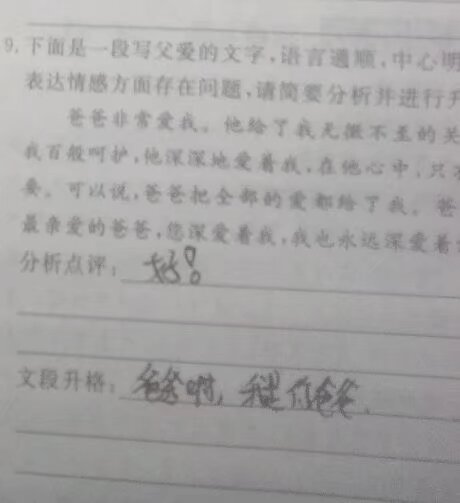 9. 下面是一段写父爱的文字,语言通顺,中心明
表达情感方面存在问题,请简要分析并进行升
爸爸非常爱我。他给了我无微不至的关
我百般呵护,他深深地爱着我,在他心中,只有
要。可以说,爸爸把全部的爱都给了我。爸
最亲爱的爸爸,您深爱着我,我也永远深爱着
分析点评: 好!
文段升格: 爸爸啊,我是你爸爸.